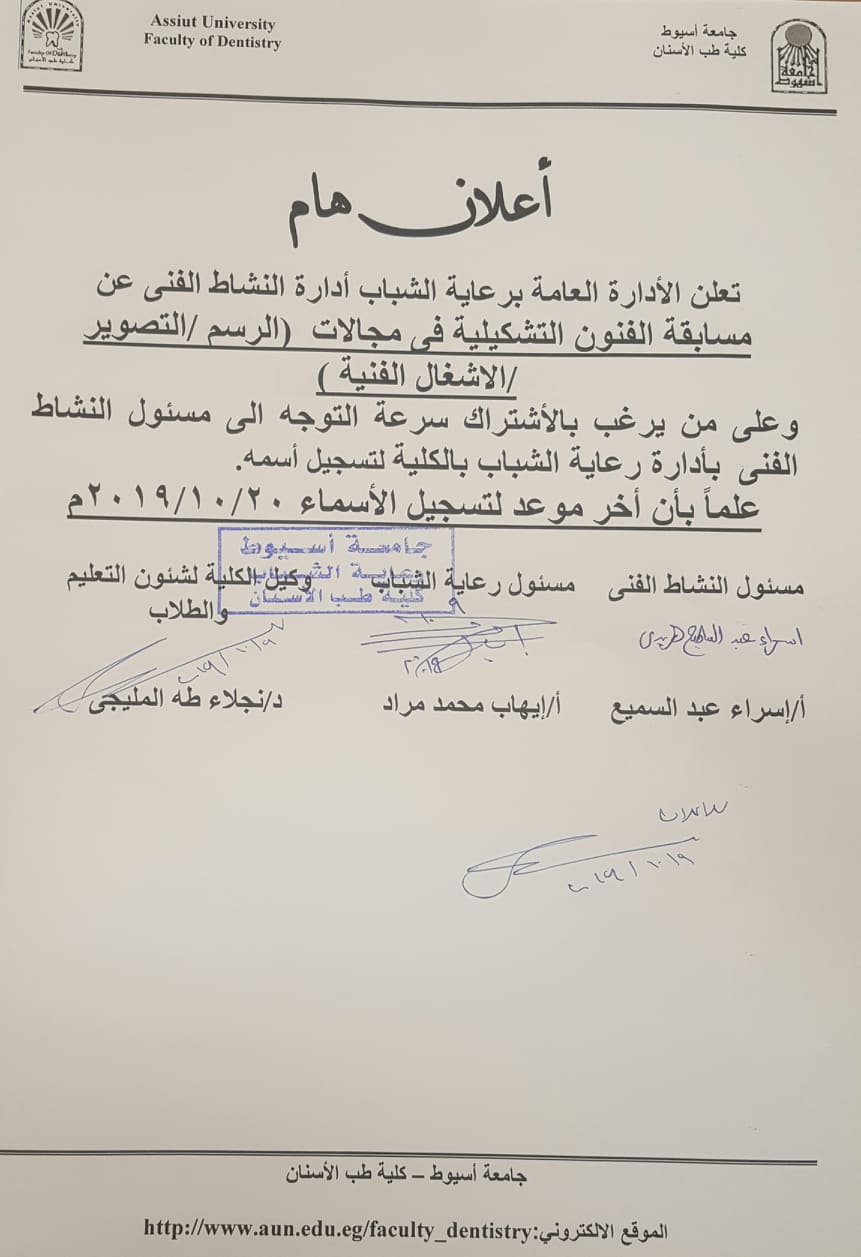 Assiut University
Faculty of Dentistry
جامعة أسيوط
كلية طب الأسنان
أعلان هام
تعلن الأدارة العامة برعاية الشباب أدارة النشاط الفنى عن
مسابقة الفنون التشكيلية فى مجالات (الرسم /التصوير
/الاشغال الفنية )
وعلى من يرغب بالأشتراك سرعة التوجه الى مسئول النشاط
الفنى بأدارة رعاية الشباب بالكلية لتسجيل أسمه.
علماً بأن أخر موعد لتسجيل الأسماء ٢٠١٩/١٠/٢٠م
جامعة أسيوط
رعاية الشباب
كلية طب الأسنان
مسئول النشاط الفنى مسئول رعاية الشباب وكيل الكلية لشئون التعليم
والطلاب
اسراء عبد السميع
أ/إسراء عبد السميع أ/إيهاب محمد مراد د/نجلاء طه المليجى
للاعلان
جامعة أسيوط – كلية طب الأسنان
الموقع الالكتروني:http://www.aun.edu.eg/faculty_dentistry